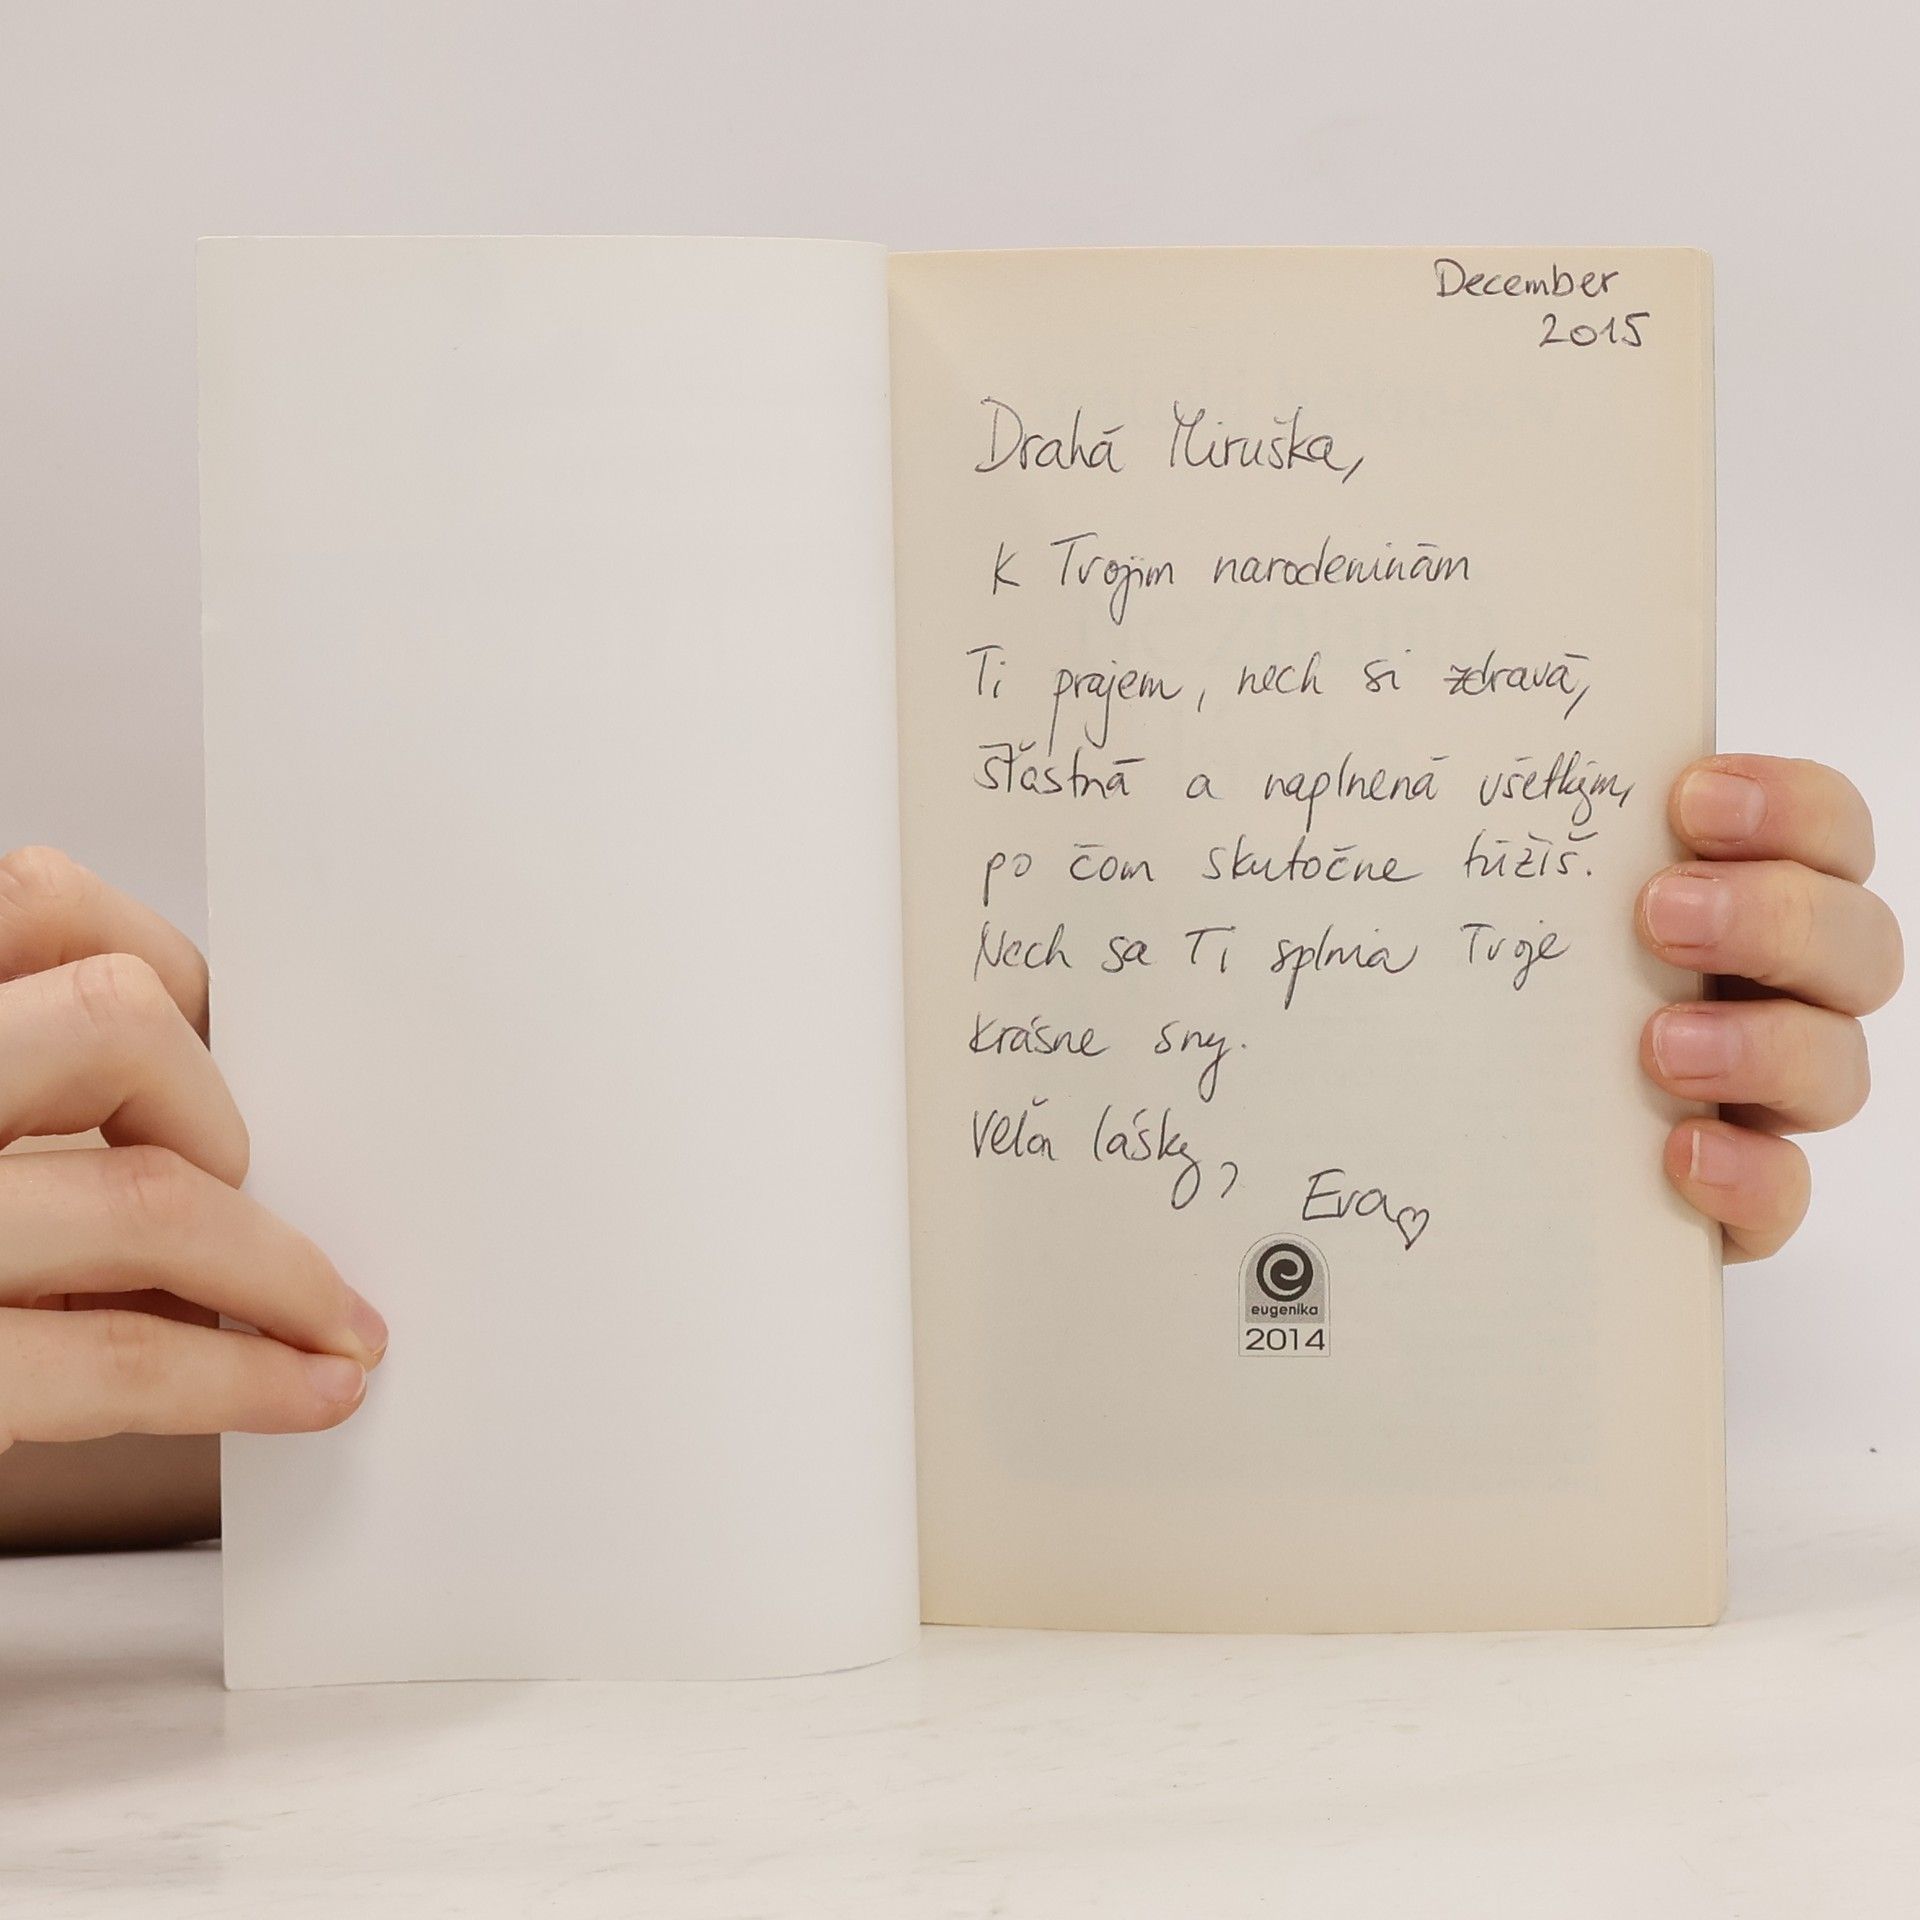 December
2015
Drahá Miruška,
K Tvojim narodeninám
Ti prajem, nech si zdravá,
šťastná a naplnená všetkým,
po čom skutočne túžiš.
Nech sa Ti splnia Tvoje
krásne sny.
Veľa lásky,
Eva♡
eugenika
2014